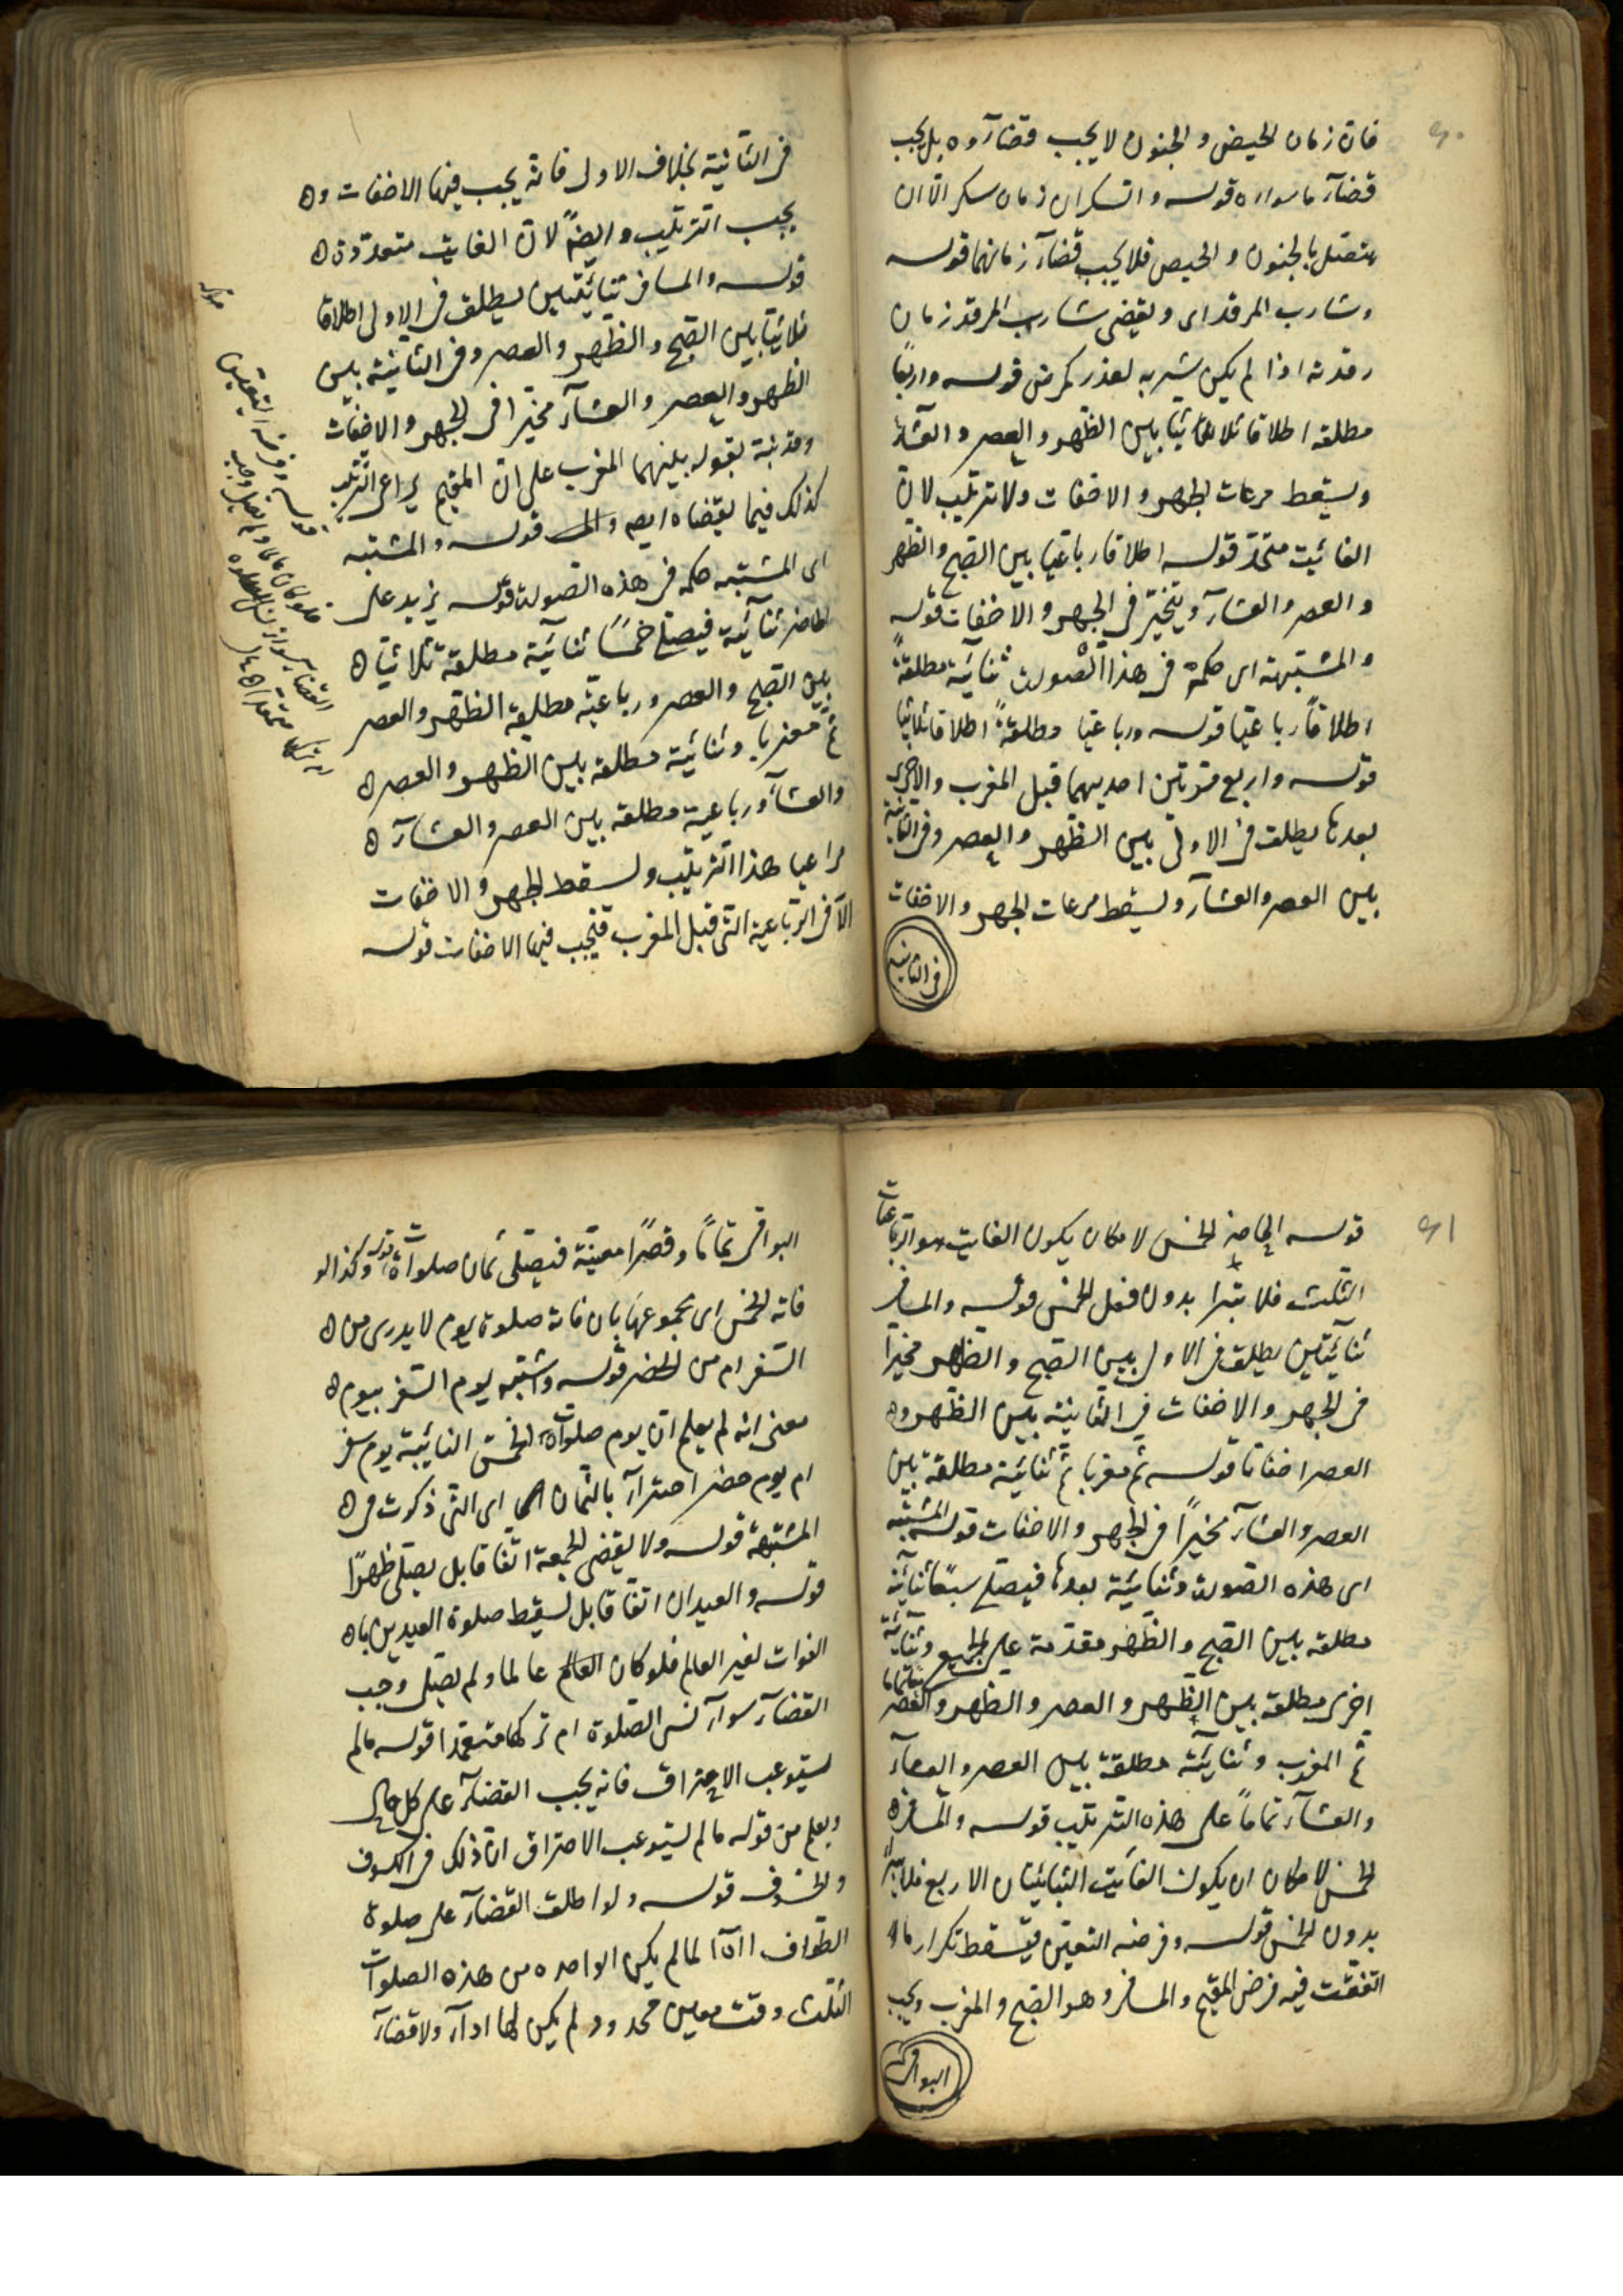 ٦٠
فان زمان الحيض والجنون لا يجب قضاؤه بل يجب
قضآء ما سواه قوله والسكران زمان سكره الا ان
يتصل بالجنون والحيض فلا يجب قضآء زمانهما قوله
وشارب المرقد اى ويقضى شارب المرقد زمان
رقدته اذا لم يكن شربه لعذر كمرض قوله واربعًا
مطلقه اطلاقا ثلاثيا بين الظهر والعصر والعشآء
ويسقط مرعات الجهر والاخفات ولا ترتيب لان
الفائيت متحدّ قوله اطلاقا رباعيا بين الصبح والظهر
والعصر والعشآء ويتخيّر فى الجهر والاخفات قوله
والمشتبهة اى حكمه فى هذا الصورت ثنائية مطلقةً
اطلاقًا رباعيّا قوله ورباعيا مطلقةً اطلاقا ثلاثيا
قوله واربع مرّتين احديهما قبل المغرب والاخرى
بعدها يطلق فى الاولى بين الظهر والعصر وفى الثانية
بين العصر والعشآء ويسقط مرعات الجهر والاخفات
فى الثانية
فى الثانية بخلاف الاول فانه يجب فيها الاخفات و
يجب الترتيب وايضًا لان الفايت متعدّدة
قوله والمسافر ثنائيتين يطلق فى الاولى اطلاقا
ثلاثيا بين الصبح والظهر والعصر وفى الثانية بين
الظهر والعصر والعشآء مخيرا فى الجهر والاخفات
وقد نبّة بقوله بينهما المغرب على ان المقيم يراعى الترتيب
كذلك فيما يقضاه ايضا قوله والمشتبه
اى المشتبه حكمه فى هذه الصورت قوله يزيد على
الحاضر ثنائية فيصلى خمسًا ثنائية مطلقة ثلاثيا
بين الصبح والعصر ورباعيّة مطلقة الظهر والعصر
ثم مغربا وثنائية مطلقة بين الظهر والعصر
والعشآء ورباعية مطلقه بين العصر والعشآء
مراعيا هذا الترتيب ويسقط الجهر والاخفات
الا فى الرباعية التى قبل المغرب فيجب فيها الاخفات قوله
قوله وفرضه التعيين
فلو كان عالما ولم يصل وجب
القضا سواء نسى الصلوة
ام تركها متعمدا
٦١
قوله الحاضر الخمس لامكان يكون الفايت هو الرباعيات
الثلث فلا تبرا بدون فعل الخمس قوله والمسافر
ثنائيتين يطلق فى الاول بين الصبح والظهر مخيرًا
فى الجهر والاخفات فى الثانية بين الظهر و
العصر اخفاتا قوله ثم مغربا ثم ثنائية مطلقة بين
العصر والعشآء مخيرًا فى الجهر والاخفات قوله المشتبه
اى هذه الصورت وثنائية بعدها فيصلى سبعًا ثنائية
مطلقه بين الصبح والظهر مقدمة على الجميع وثنائية
اخرى مطلقة بين الظهر والعصر والظهر والعصر تماما
ثم المغرب وثنائية مطلقة بين العصر والعشآء
والعشآء تمامًا على هذه الترتيب قوله والمسافر
الخمس لامكان ان يكون الفايت الثنائيتان الاربع فلا تبرا
بدون الخمس قوله وفرضه التعيين فيسقط تكرار ما
اتفقت فيه فرض المقيم والمسافر وهو الصبح والمغرب ويجب
البواقى
البواقى تمامًا وقصرًا معينة فيصلى ثمان صلوات قوله وكذا لو
فاته الخمس اى بمجموعها بان فاته صلوة يوم لا يدرى من
السفر ام من الحضر قوله واشتبه يوم السفر بيوم
معنى انه لم يعلم ان يوم صلوات الخمس الفائيتة يوم سفر
ام يوم حضر اجتزاء بالثمان اى التى ذكرت فى
المشتبهة قوله ولا يقضى الجمعة اتفاقا بل يصلى ظهرًا
قوله والعيدان اتفاقا بل يسقط صلوة العيدين با
الفوات لغير العالم فلو كان عالما ولم يصل وجب
القضآء سوآء نسى الصلوة ام تركها متعمدا قوله ما لم
يستوعب الاحتراق فانه يجب القضآء على كل حال
ويعلم من قوله ما لم يستوعب الاحتراق ان ذلك فى الكسوف
والخسوف قوله ولو اطلق القضآء على صلوة
الطواف لما لم يكن الواحده من هذه الصلوات
الثلث وقت معين محدود لم يكن لها ادآء ولا قضآء